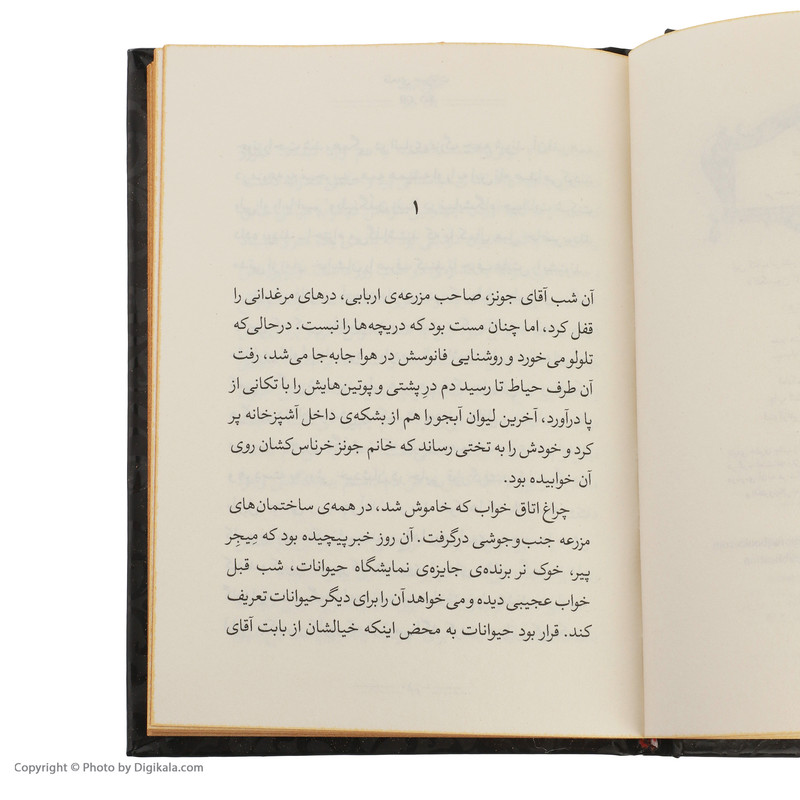 ۱
آن شب آقای جونز، صاحب مزرعه‌ی اربابی، درهای مرغدانی را
قفل کرد، اما چنان مست بود که دریچه‌ها را نبست. درحالی‌که
تلولو می‌خورد و روشنایی فانوسش در هوا جابه‌جا می‌شد، رفت
آن طرف حیاط تا رسید دم درِ پشتی و پوتین‌هایش را با تکانی از
پا درآورد، آخرین لیوان آبجو را هم از بشکه‌ی داخل آشپزخانه پر
کرد و خودش را به تختی رساند که خانم جونز خرناس‌کشان روی
آن خوابیده بود.
چراغ اتاق خواب که خاموش شد، در همه‌ی ساختمان‌های
مزرعه جنب‌وجوشی درگرفت. آن روز خبر پیچیده بود که مِیجِر
پیر، خوک نر برنده‌ی جایزه‌ی نمایشگاه حیوانات، شب قبل
خواب عجیبی دیده و می‌خواهد آن را برای دیگر حیوانات تعریف
کند. قرار بود حیوانات به محض اینکه خیالشان از بابت آقای
Copyright © Photo by Digikala.com